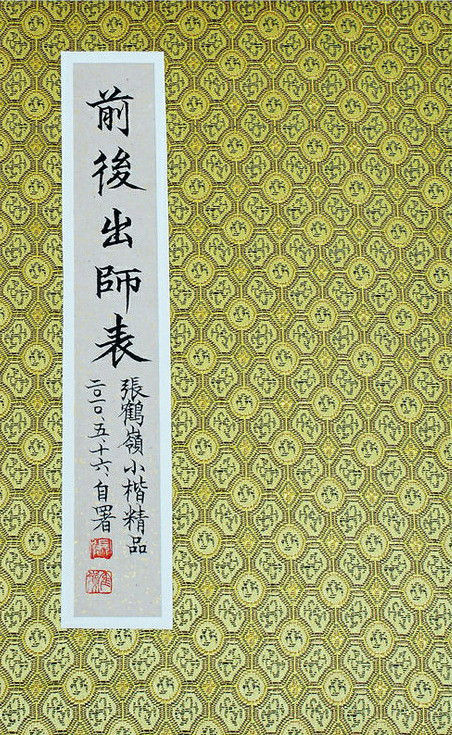 前後出師表
張鶴嶺小楷精品
二〇一〇、五、十六、自署